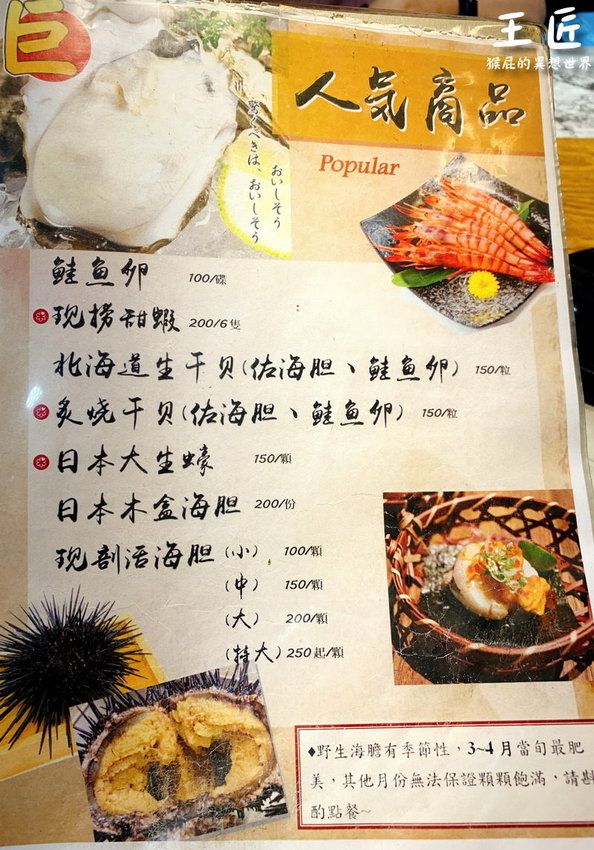 巨
王匠
猴屁的異想世界
人氣商品
Popular
おいしそう
驚くべきは、おいしそう
鮭魚卵 100/碟
现捞甜蝦 200/6隻
北海道生干贝(佐海胆、鮭魚卵) 150/粒
炙燒干贝(佐海胆、鮭魚卵) 150/粒
日本大生蠔 150/顆
日本木盒海胆 200/份
现剖活海胆(小) 100/顆
(中) 150/顆
(大) 200/顆
(特大) 250起/顆
♦野生海膽有季節性，3~4月當旬最肥
美，其他月份無法保證顆顆飽滿，請斟
酌點餐~